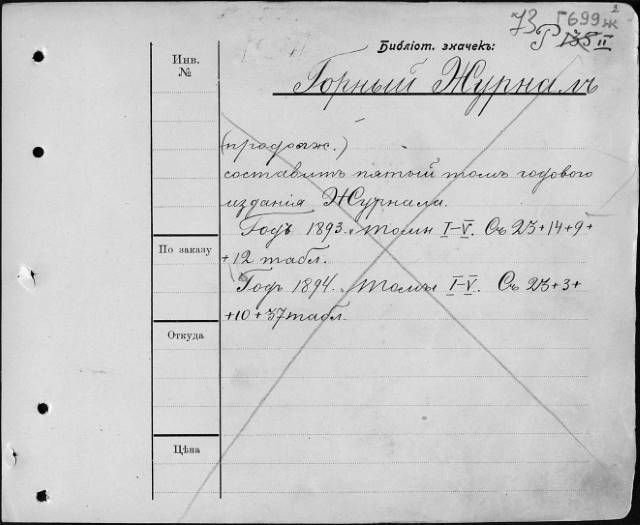 73 Г699ж 2
Р 135 II
Библіот. значекъ:
Инв.
№
Горный Журналъ
(продолж.)
составитъ пятый томъ годового
изданія Журнала.
Годъ 1893. Томы I–V. Съ 23+14+9+
По заказу
+12 табл.
Годъ 1894. Томы I–V. Съ 23+3+
+10+37 табл.
Откуда
Цѣна